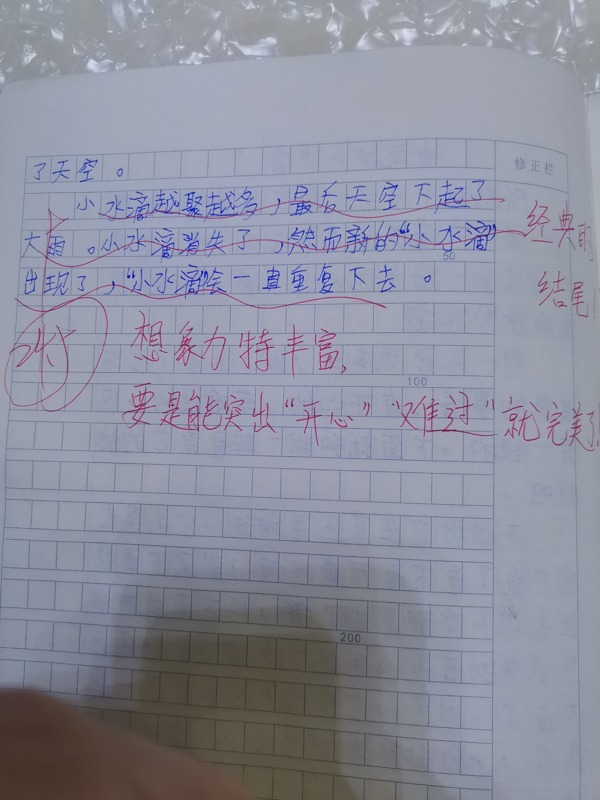 修正栏
了天空。
小水滴越聚越多，最后天空下起了
大雨。小水滴消失了，然而新的“小水滴”
50
出现了，“小水滴”会一直重复下去。
经典的
结尾！
想象力特丰富，
100
要是能突出“开心”“难过”就完美了！
200